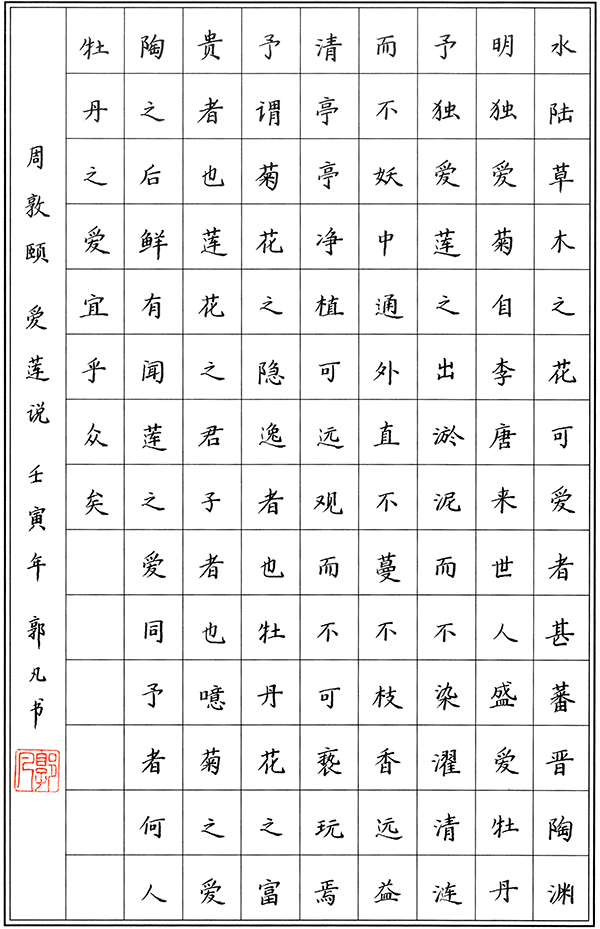 水陆草木之花可爱者甚蕃晋陶渊
明独爱菊自李唐来世人盛爱牡丹
予独爱莲之出淤泥而不染濯清涟
而不妖中通外直不蔓不枝香远益
清亭亭净植可远观而不可亵玩焉
予谓菊花之隐逸者也牡丹花之富
贵者也莲花之君子者也噫菊之爱
陶之后鲜有闻莲之爱同予者何人
牡丹之爱宜乎众矣
周敦颐 爱莲说 壬寅年 郭凡书
郭凡